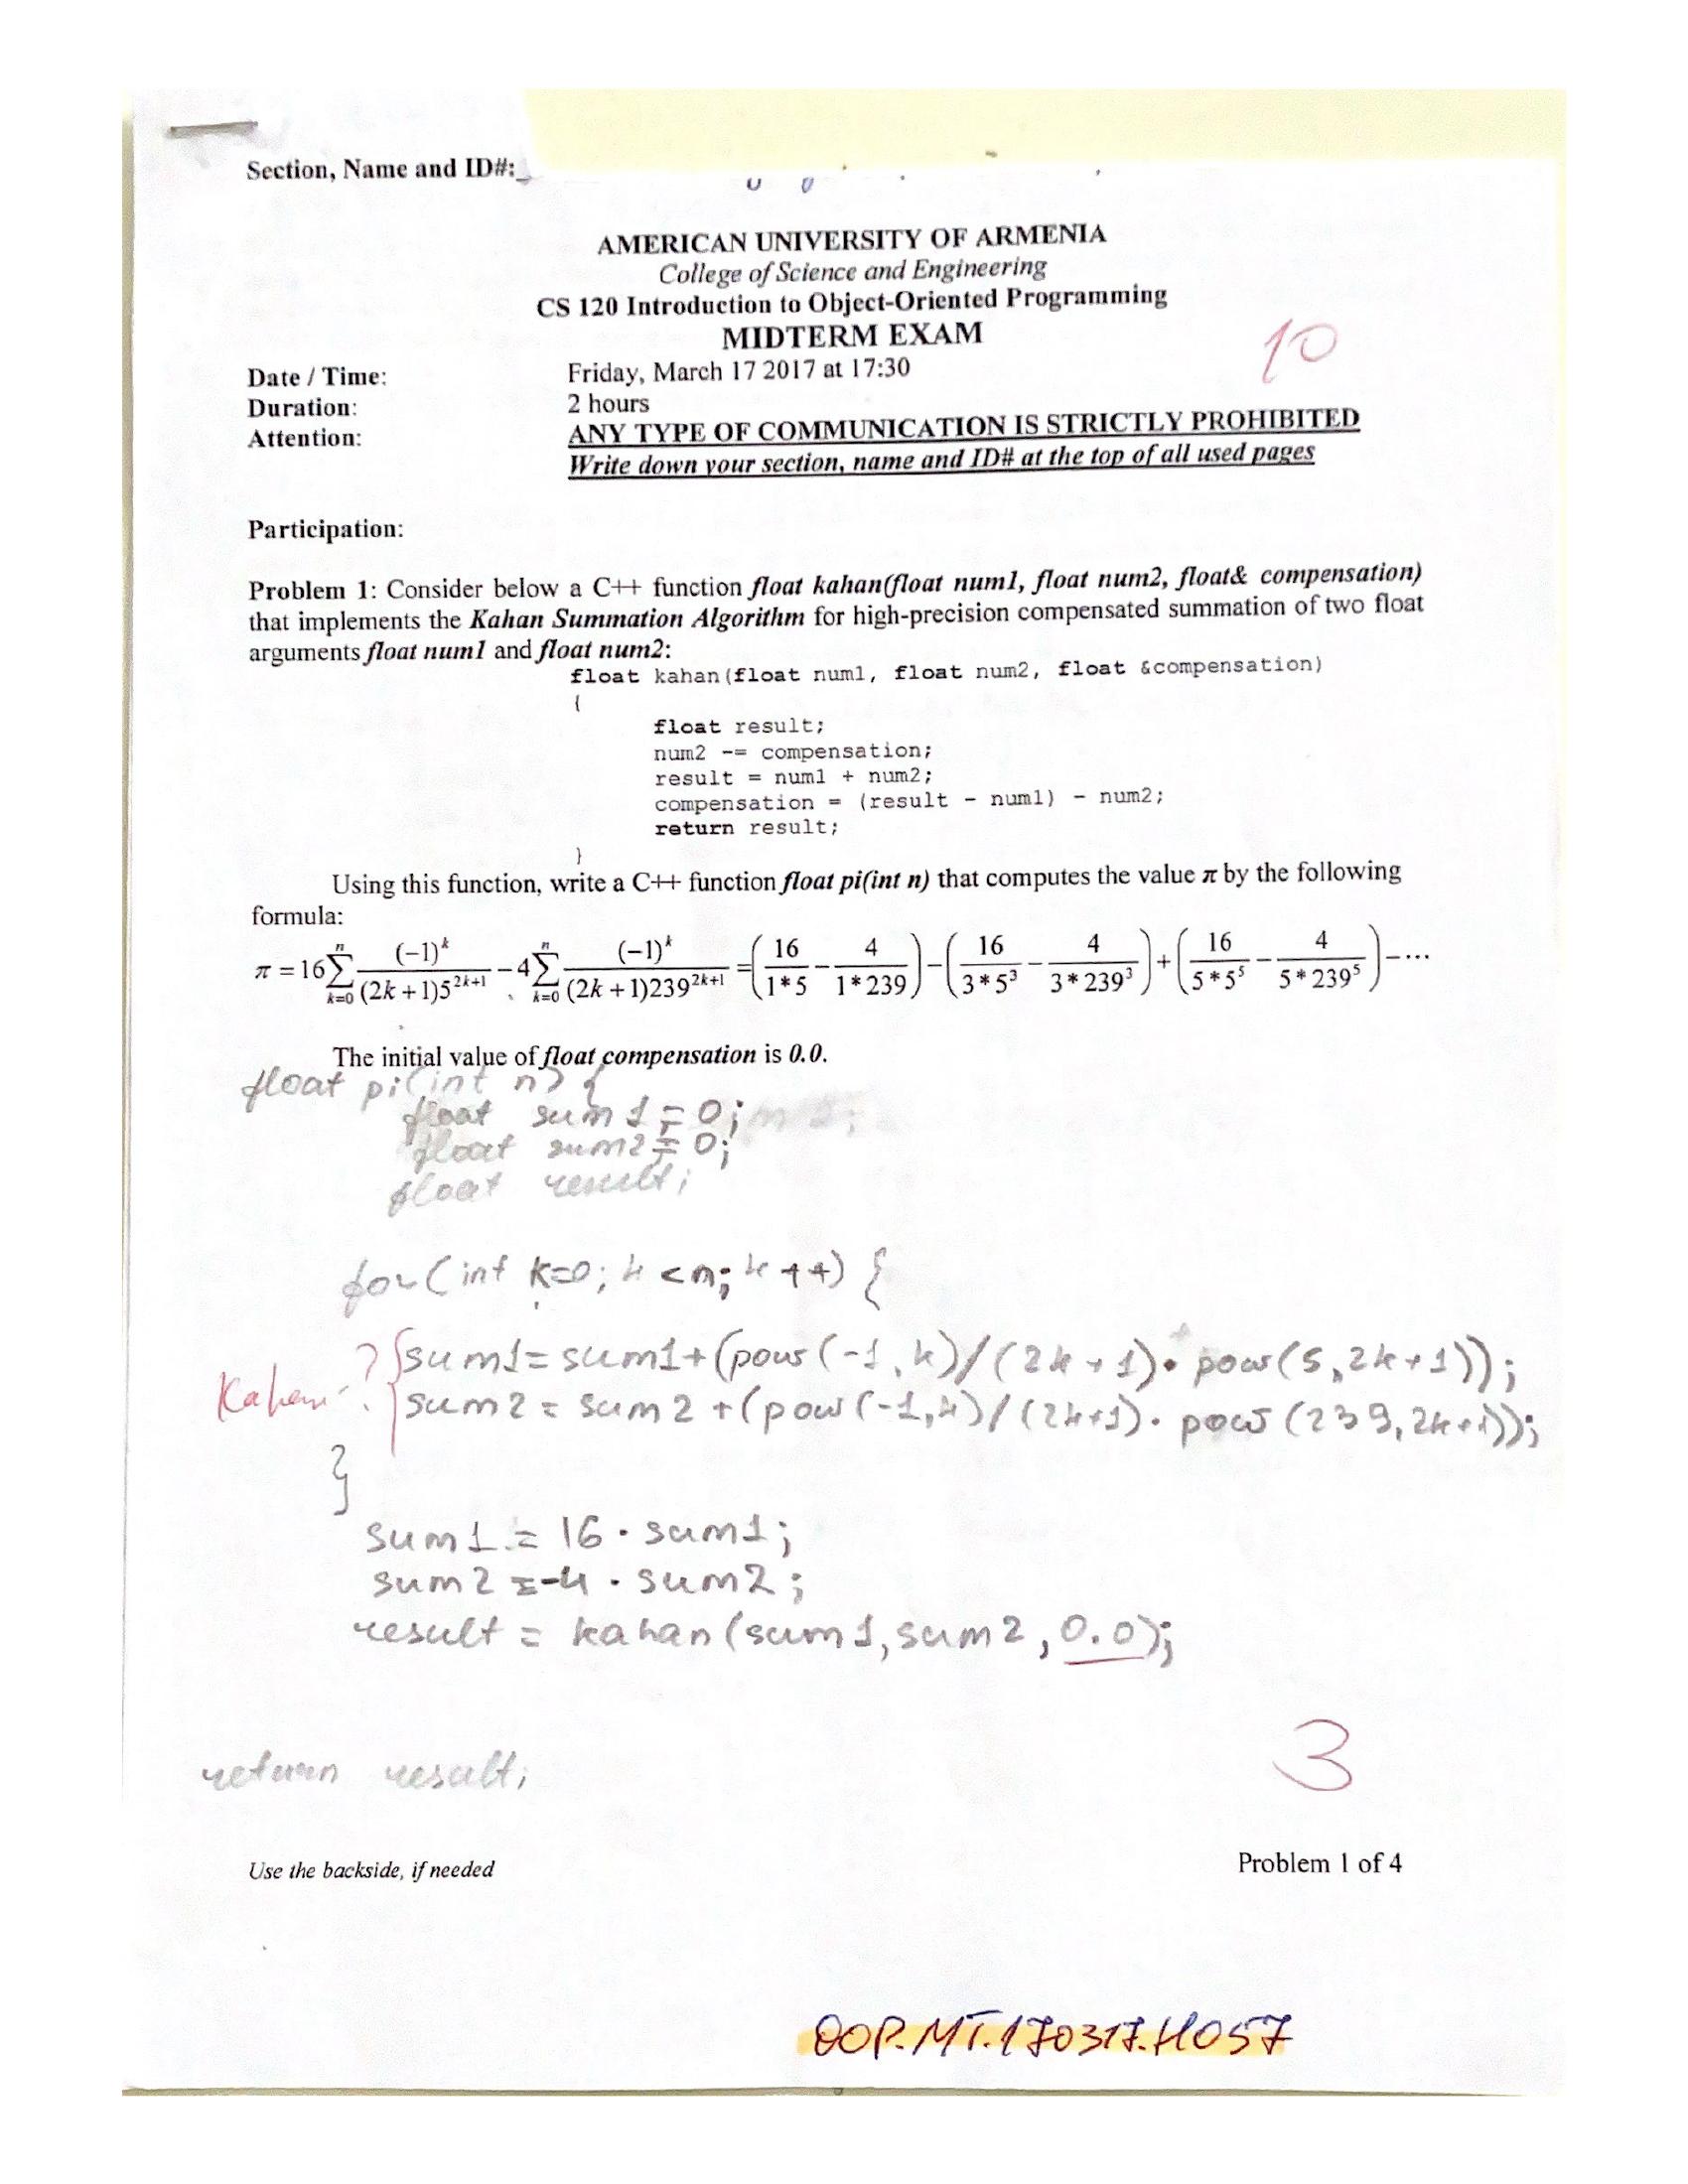 Section, Name and ID#:_
AMERICAN UNIVERSITY OF ARMENIA
College of Science and Engineering
CS 120 Introduction to Object-Oriented Programming
MIDTERM EXAM
10
Date / Time: Friday, March 17 2017 at 17:30
Duration: 2 hours
Attention: ANY TYPE OF COMMUNICATION IS STRICTLY PROHIBITED
Write down your section, name and ID# at the top of all used pages
Participation:
Problem 1: Consider below a C++ function float kahan(float num1, float num2, float& compensation)
that implements the Kahan Summation Algorithm for high-precision compensated summation of two float
arguments float num1 and float num2:
float kahan(float num1, float num2, float &compensation)
{
float result;
num2 -= compensation;
result = num1 + num2;
compensation = (result - num1) - num2;
return result;
}
Using this function, write a C++ function float pi(int n) that computes the value π by the following
formula:
π = 16∑_{k=0}^{n} (-1)^k / ((2k+1)5^{2k+1}) - 4∑_{k=0}^{n} (-1)^k / ((2k+1)239^{2k+1}) = (16/(1*5) - 4/(1*239)) - (16/(3*5^3) - 4/(3*239^3)) + (16/(5*5^5) - 4/(5*239^5)) - ...
The initial value of float compensation is 0.0.
float pi(int n) {
float sum1 = 0;
float sum2 = 0;
float result;
for(int k=0; k<n; k++) {
? {sum1 = sum1+(pow(-1,k)/(2k+1)·pow(5,2k+1));
Kahan
sum2 = sum2+(pow(-1,k)/(2k+1)·pow(239,2k+1));
}
sum1 = 16·sum1;
sum2 = -4·sum2;
result = kahan(sum1,sum2,0.0);
3
return result;
Use the backside, if needed Problem 1 of 4
OOP.MT.170317.H057